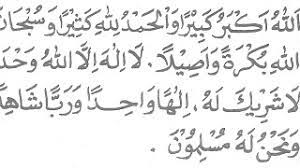 اَللّٰهُ اَكْبَرُ كَبِيْرًا وَالْحَمْدُ لِلّٰهِ كَثِيْرًا وَسُبْحَانَ
اللّٰهِ بُكْرَةً وَاَصِيْلًا. لَا اِلٰهَ اِلَّا اللّٰهُ وَحْدَ
لَاشَرِيْكَ لَهُ، اِلٰهًا وَاحِدًا وَرَبًّا شَاهِدًا
وَنَحْنُ لَهُ مُسْلِمُوْنَ.